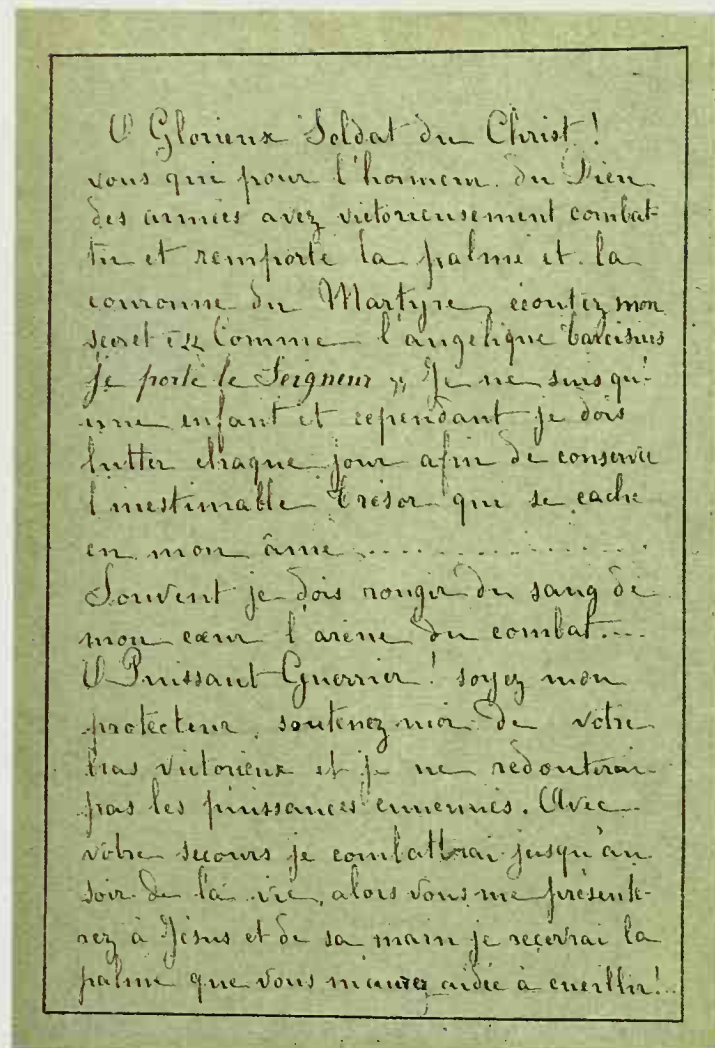 O Glorieux Soldat du Christ!
vous qui pour l'honneur du Dieu
des armées avez victorieusement combat-
tu et remporté la palme et la
couronne du Martyre, écoutez mon
secret : « Comme l'angélique Tarcisius
je porte le Seigneur », Je ne suis qu'
une enfant et cependant je dois
lutter chaque jour afin de conserver
l'inestimable Trésor qui se cache
en mon âme ................
Souvent je dois rougir du sang de
mon cœur l'arène du combat....
O Puissant Guerrier! soyez mon
protecteur, soutenez moi de votre
bras victorieux et je ne redouterai
pas les puissances ennemies. Avec
votre secours je combattrai jusqu'au
soir de la vie, alors vous me présente-
rez à Jésus et de sa main je recevrai la
palme que vous m'aurez aidée à cueillir!..